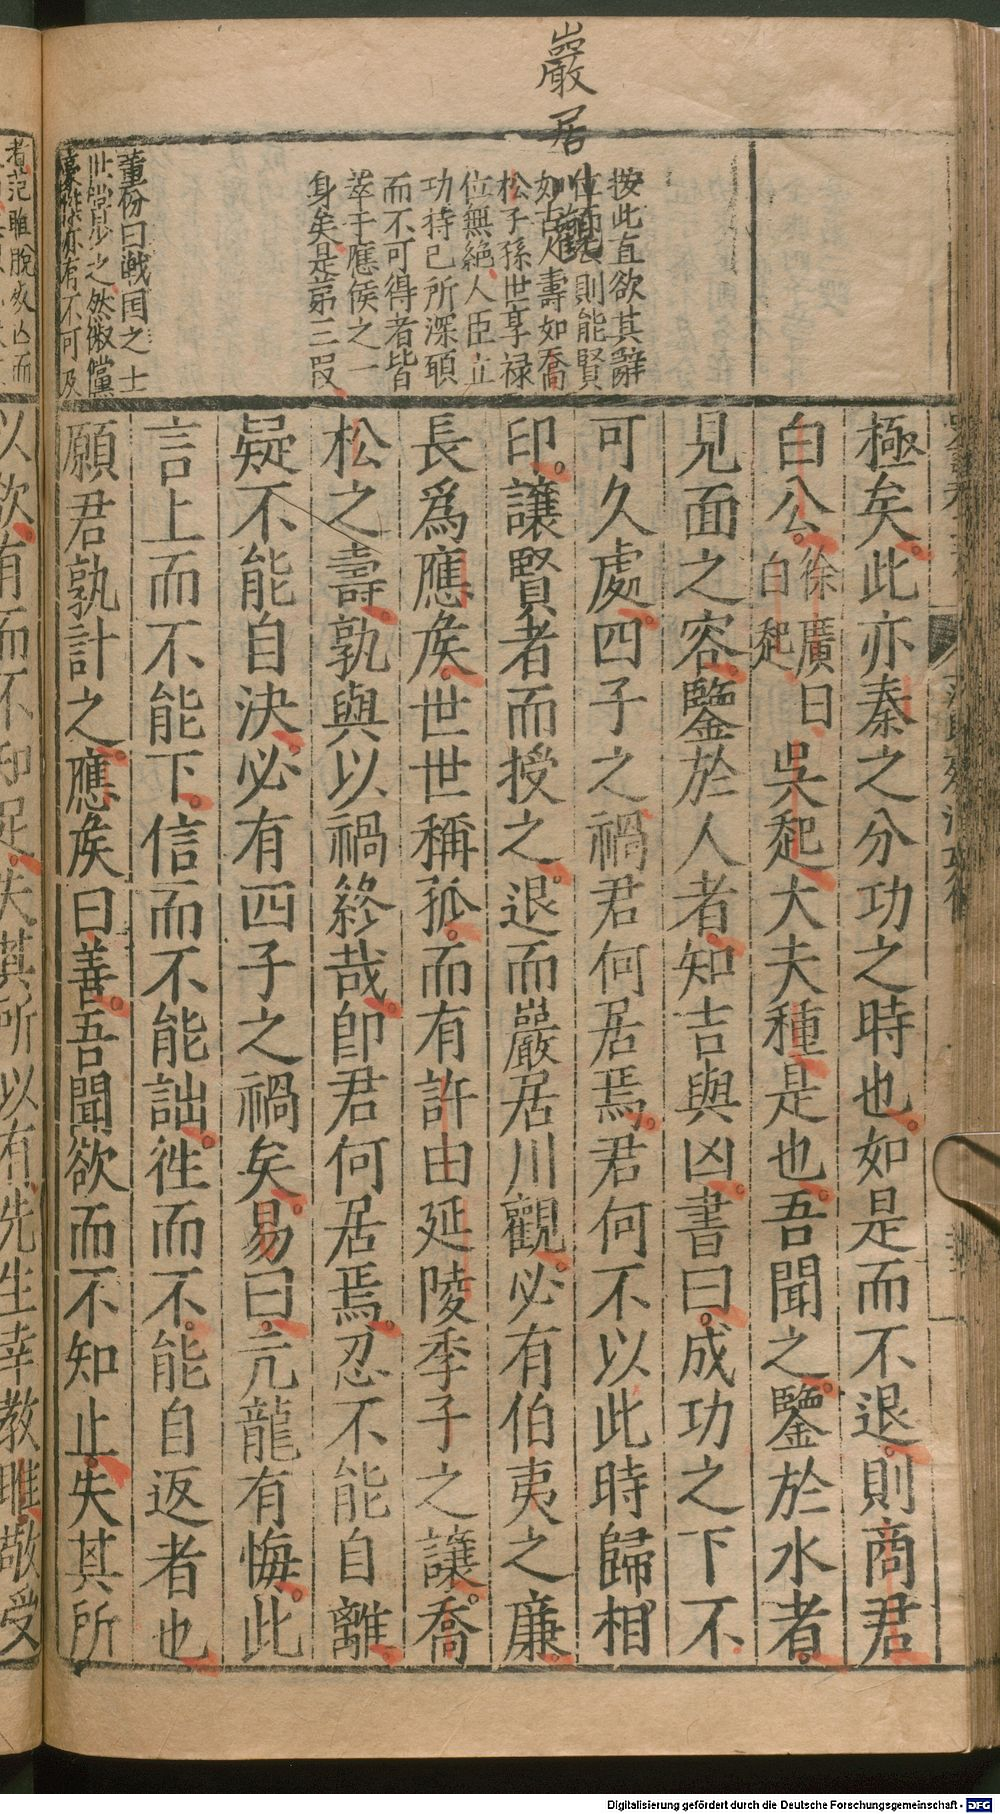 巖居川觀
按此直欲其辭
位而去則能賢
如古人壽如喬
松子孫世享禄
位無絶人臣立
功持已所深頋
而不可得者皆
萃于應侯之一
身矣是第三叚
董份曰戰国之士
世常少之然俶儻
亦有不可及
極矣此亦秦之分功之時也如是而不退則商君
白公徐廣曰白起吳起大夫種是也吾聞之鑒於水者
見面之容鑒於人者知吉與凶書曰成功之下不
可久處四子之禍君何居焉君何不以此時歸相
印讓賢者而授之退而巖居川觀必有伯夷之廉
長爲應侯世世稱孤而有許由延陵季子之讓喬
松之壽孰與以禍終哉卽君何居焉忍不能自離
疑不能自決必有四子之禍矣易曰亢龍有悔此
言上而不能下信而不能詘徃而不能自返者也
願君孰計之應侯曰善吾聞欲而不知止失其所
者范雎脫
以欲有而不知足失其所以有先生幸教雎敬受
Digitalisierung gefördert durch die Deutsche Forschungsgemeinschaft - DFG